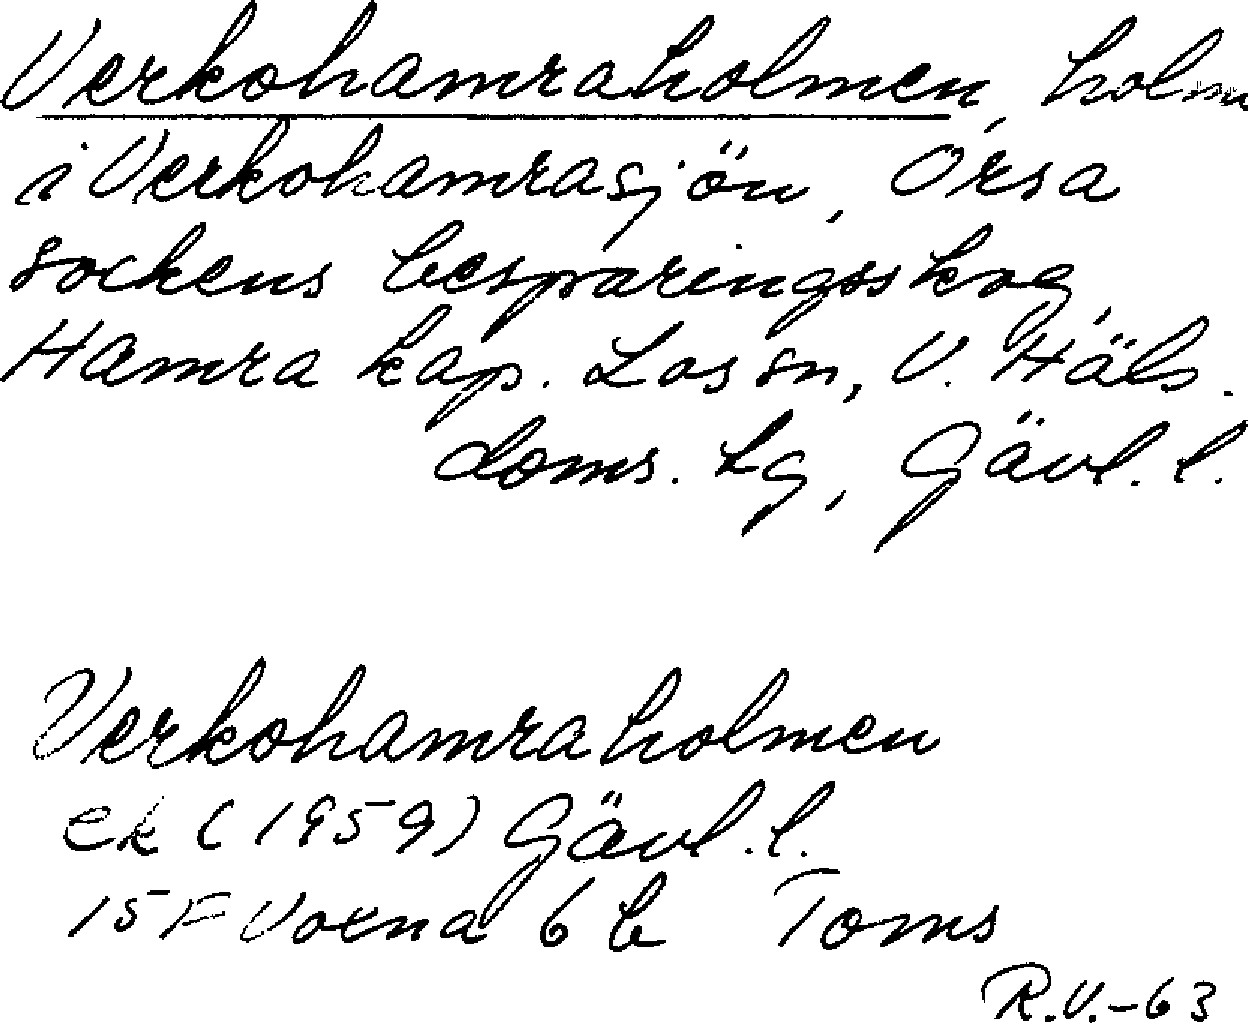 Verkohamraholmen, holme
i Verkohamrasjön, Orsa
sockens besparingsskog,
Hamra kap. Los sn, V. Häls.
doms. lg, Gävl. l.
Verkohamraholmen
ek (1959) Gävl. l.
15F Voxna 6 b Toms
R.V.-63